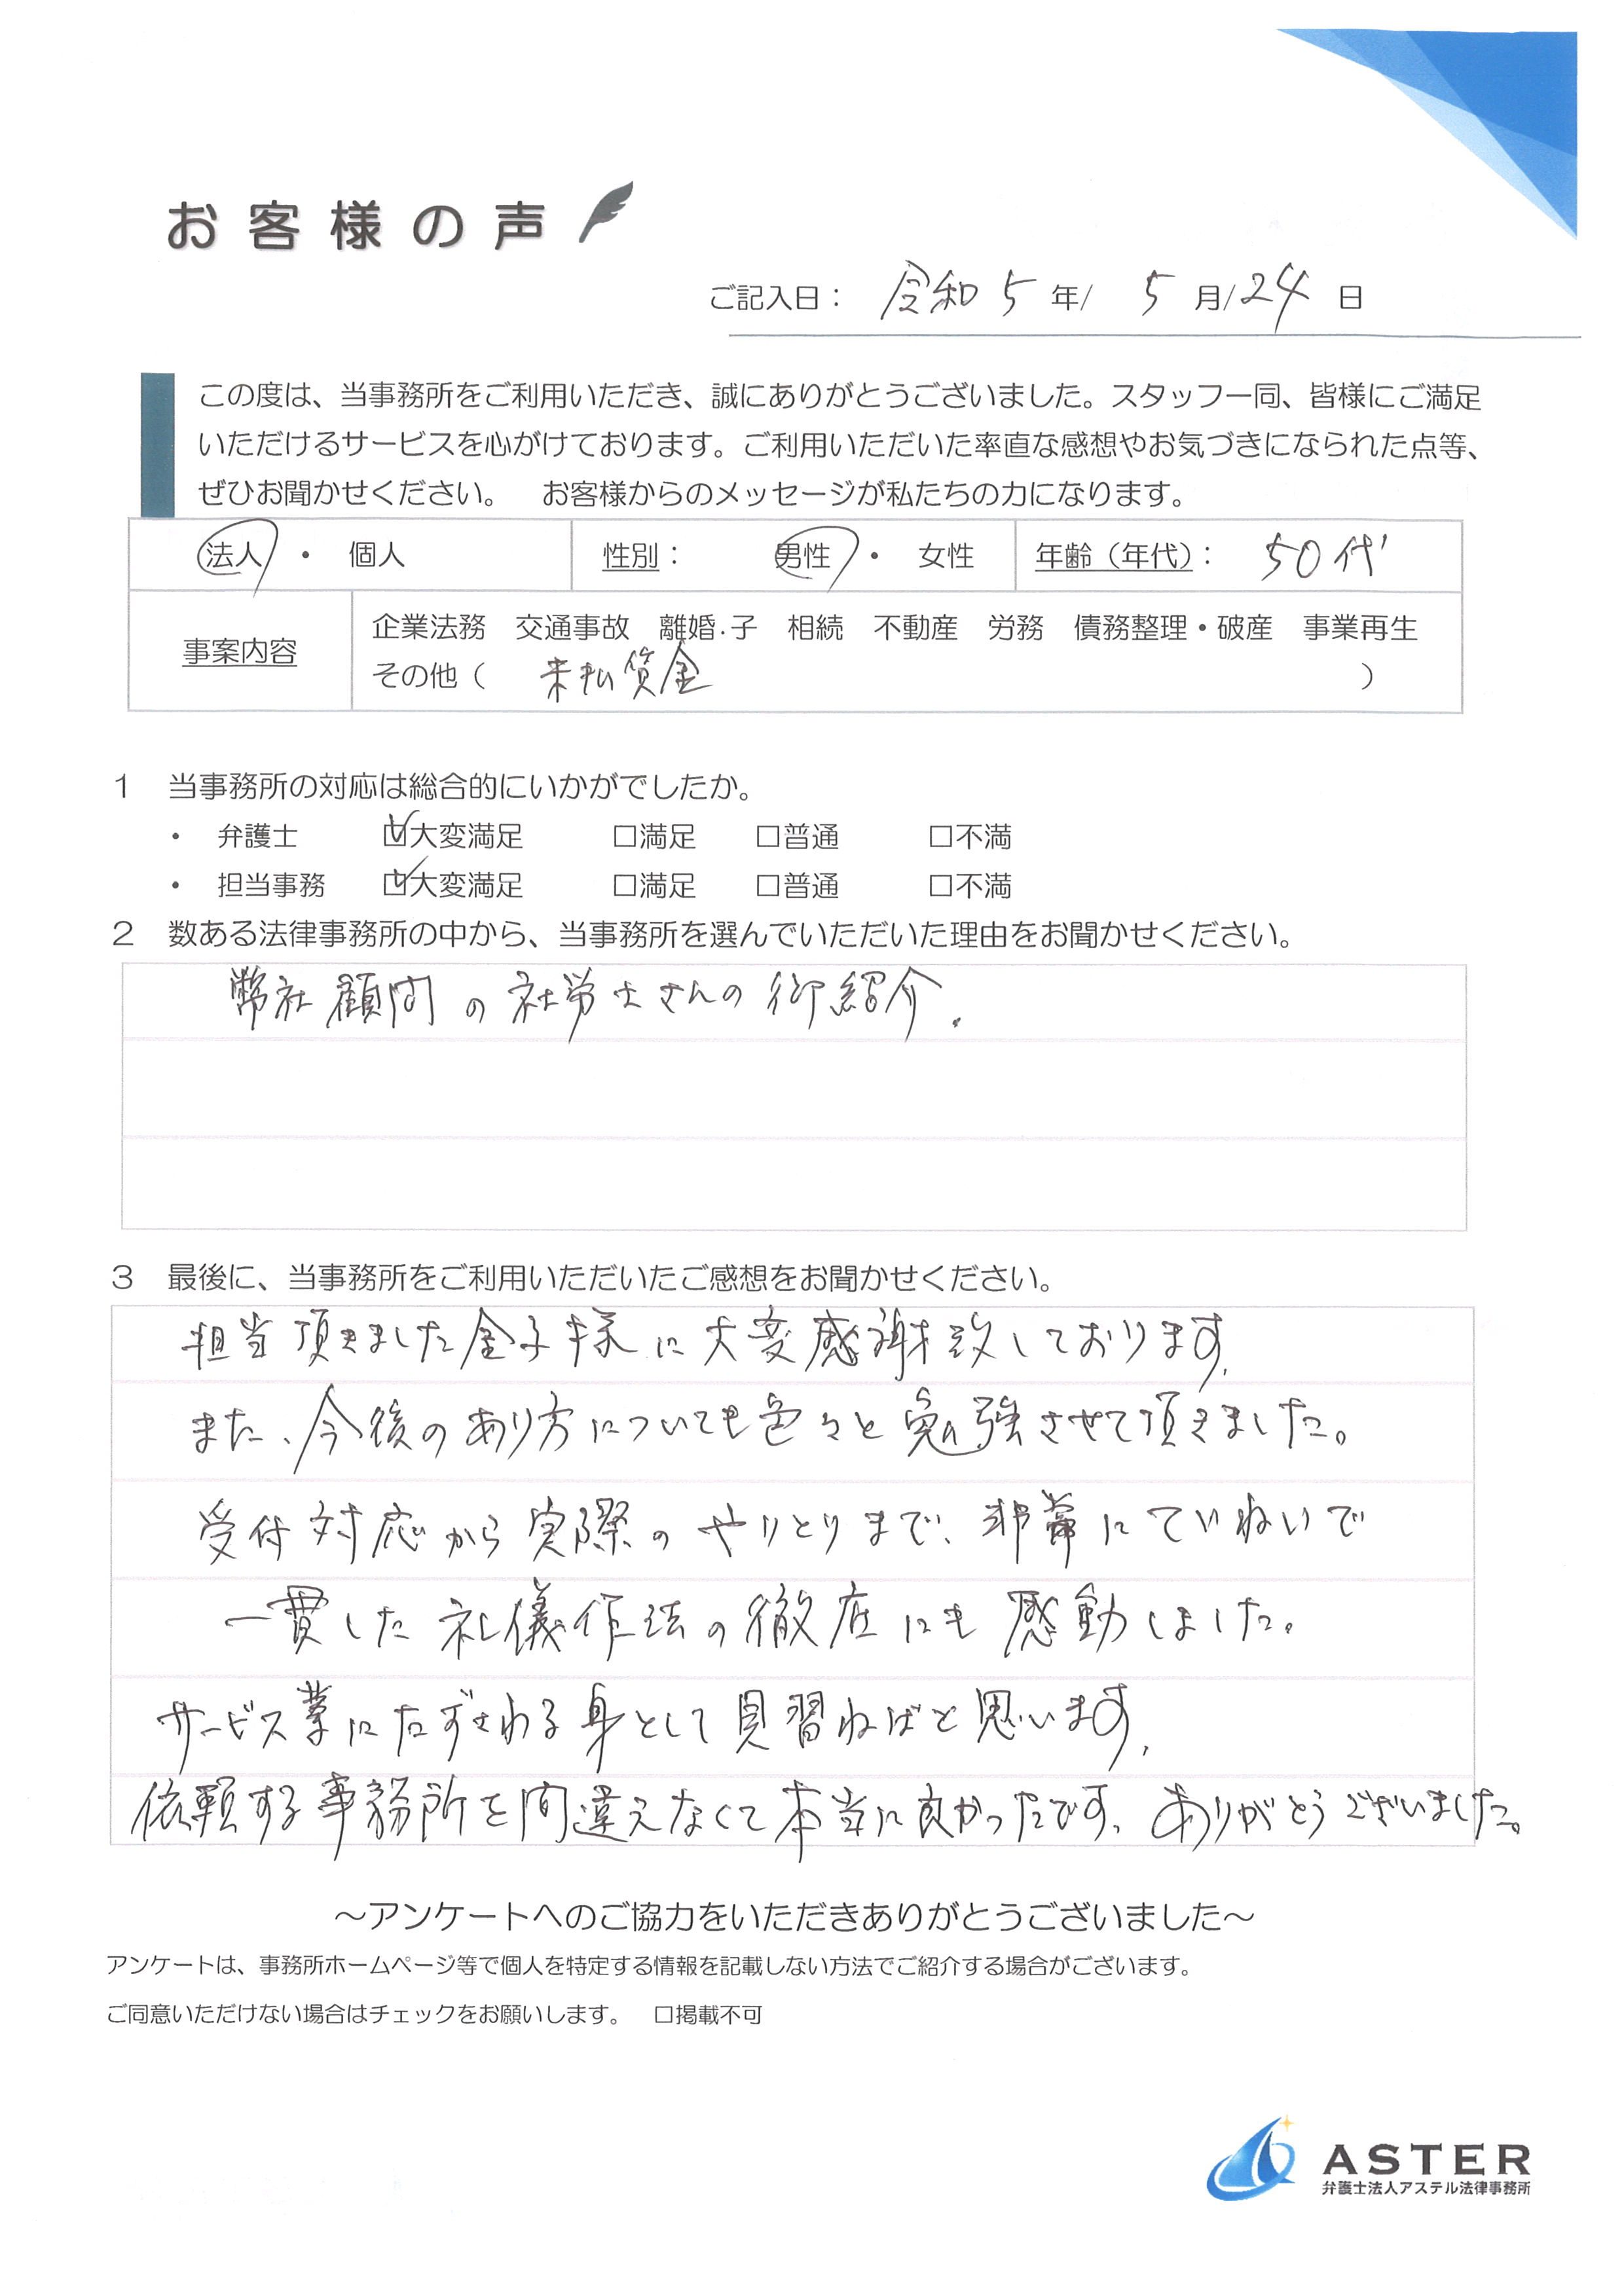 お客様の声
ご記入日： 令和5年/ 5月/24日
この度は、当事務所をご利用いただき、誠にありがとうございました。スタッフ一同、皆様にご満足
いただけるサービスを心がけております。ご利用いただいた率直な感想やお気づきになられた点等、
ぜひお聞かせください。　お客様からのメッセージが私たちの力になります。
法人 ・ 個人 性別： 男性 ・ 女性 年齢（年代）： 50代
事案内容
企業法務　交通事故　離婚・子　相続　不動産　労務　債務整理・破産　事業再生
その他（ 未払賃金 ）
1　当事務所の対応は総合的にいかがでしたか。
・ 弁護士 ☑大変満足 □満足 □普通 □不満
・ 担当事務 ☑大変満足 □満足 □普通 □不満
2　数ある法律事務所の中から、当事務所を選んでいただいた理由をお聞かせください。
弊社顧問の社労士さんの御紹介.
3　最後に、当事務所をご利用いただいたご感想をお聞かせください。
担当頂きました金子様に大変感謝致しております.
また、今後のあり方についても色々と勉強させて頂きました。
受付対応から実際のやりとりまで、非常にていねいで
一貫した礼儀作法の徹底にも感動しました。
サービス業にたずさわる身として見習わねばと思います.
依頼する事務所を間違えなくて本当に良かったです. ありがとうございました。
～アンケートへのご協力をいただきありがとうございました～
アンケートは、事務所ホームページ等で個人を特定する情報を記載しない方法でご紹介する場合がございます。
ご同意いただけない場合はチェックをお願いします。　□掲載不可
ASTER
弁護士法人アステル法律事務所